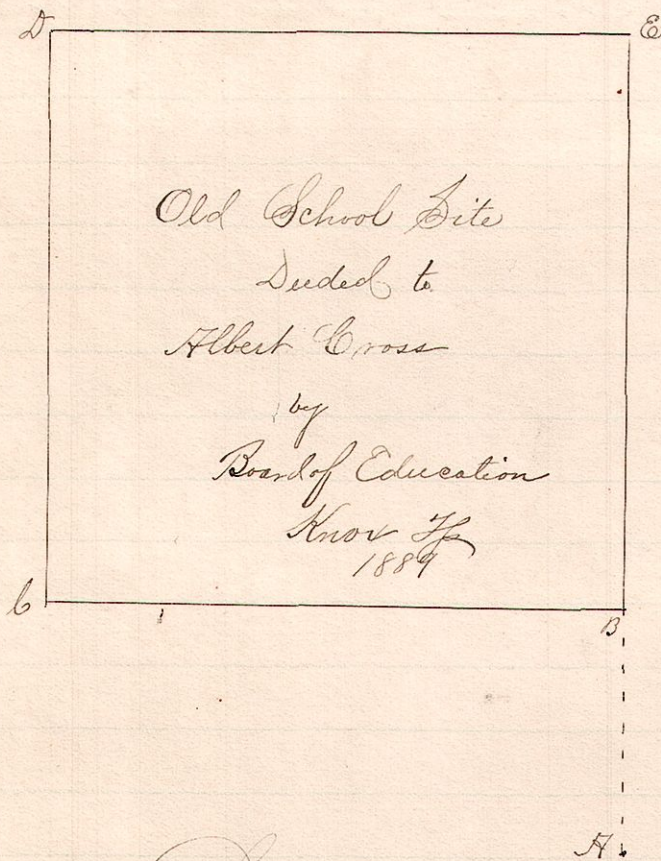 D E
Old School Site
Deeded to
Albert Cross
by
Board of Education
Knox Tp
1889
C B
A